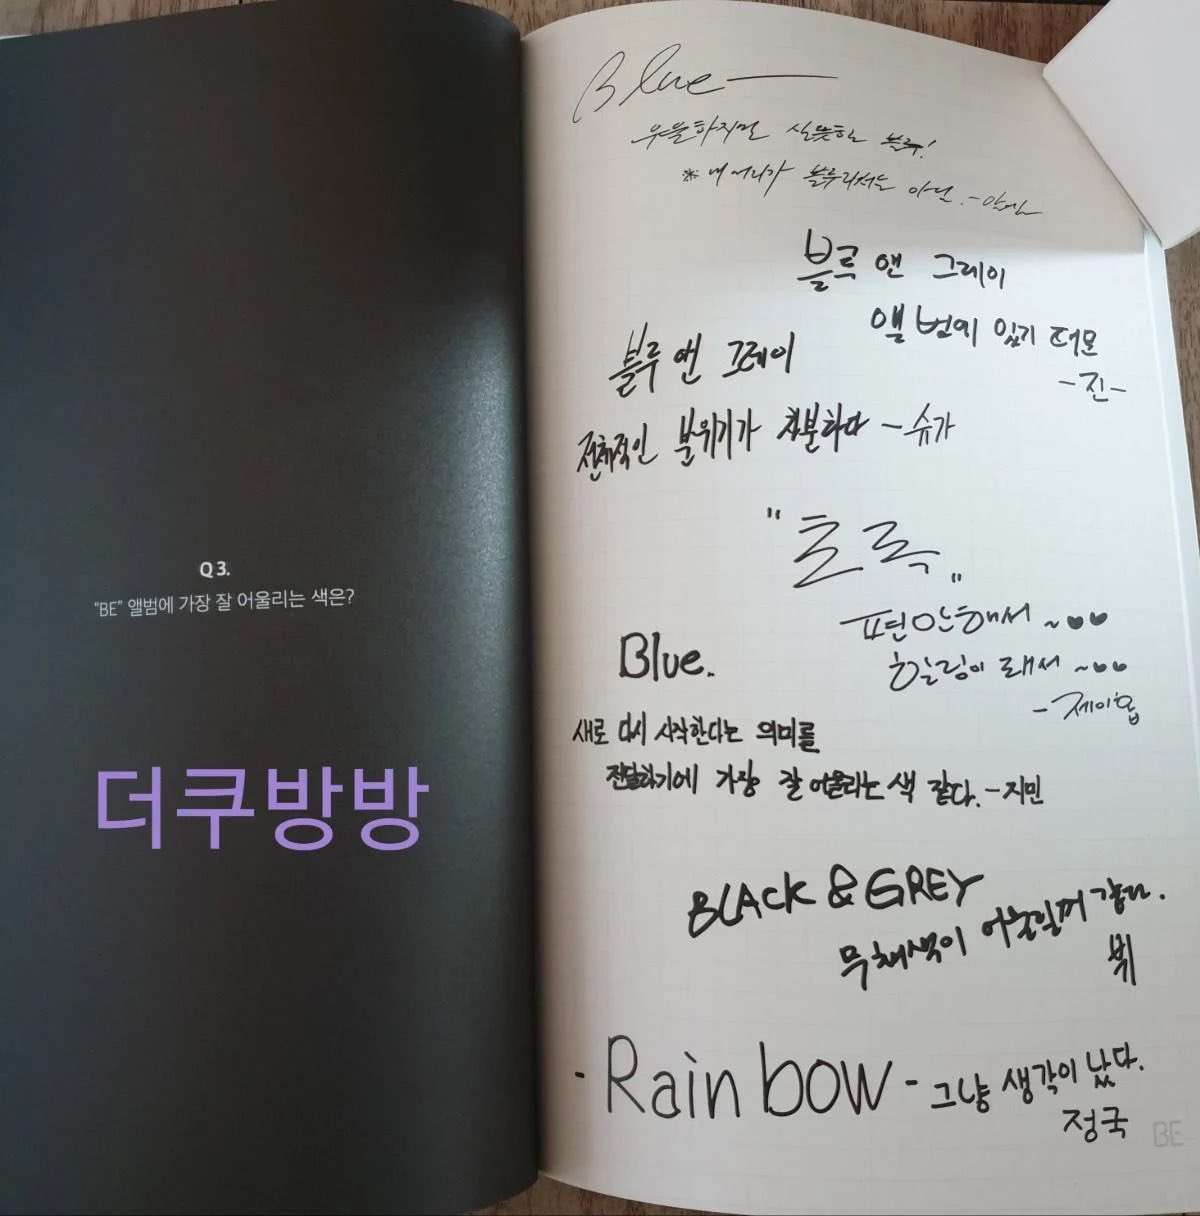 Q 3.
"BE" 앨범에 가장 잘 어울리는 색은?
더쿠방방
Blue
우울하지만 산뜻한 블루!
※ 내 머리가 블루라서는 아님.-알엠
블루 앤 그레이
앨범에 있기 때문
-진-
블루 앤 그레이
전체적인 분위기가 차분하다 -슈가
"초록"
편안해서 ~♥♥
힐링이 돼서 ~♥♥
- 제이홉
Blue.
새로 다시 시작한다는 의미를
전달하기에 가장 잘 어울리는 색 같다. -지민
BLACK & GREY
무채색이 어울릴꺼 같다.
뷔
- Rainbow - 그냥 생각이 났다.
정국
BE